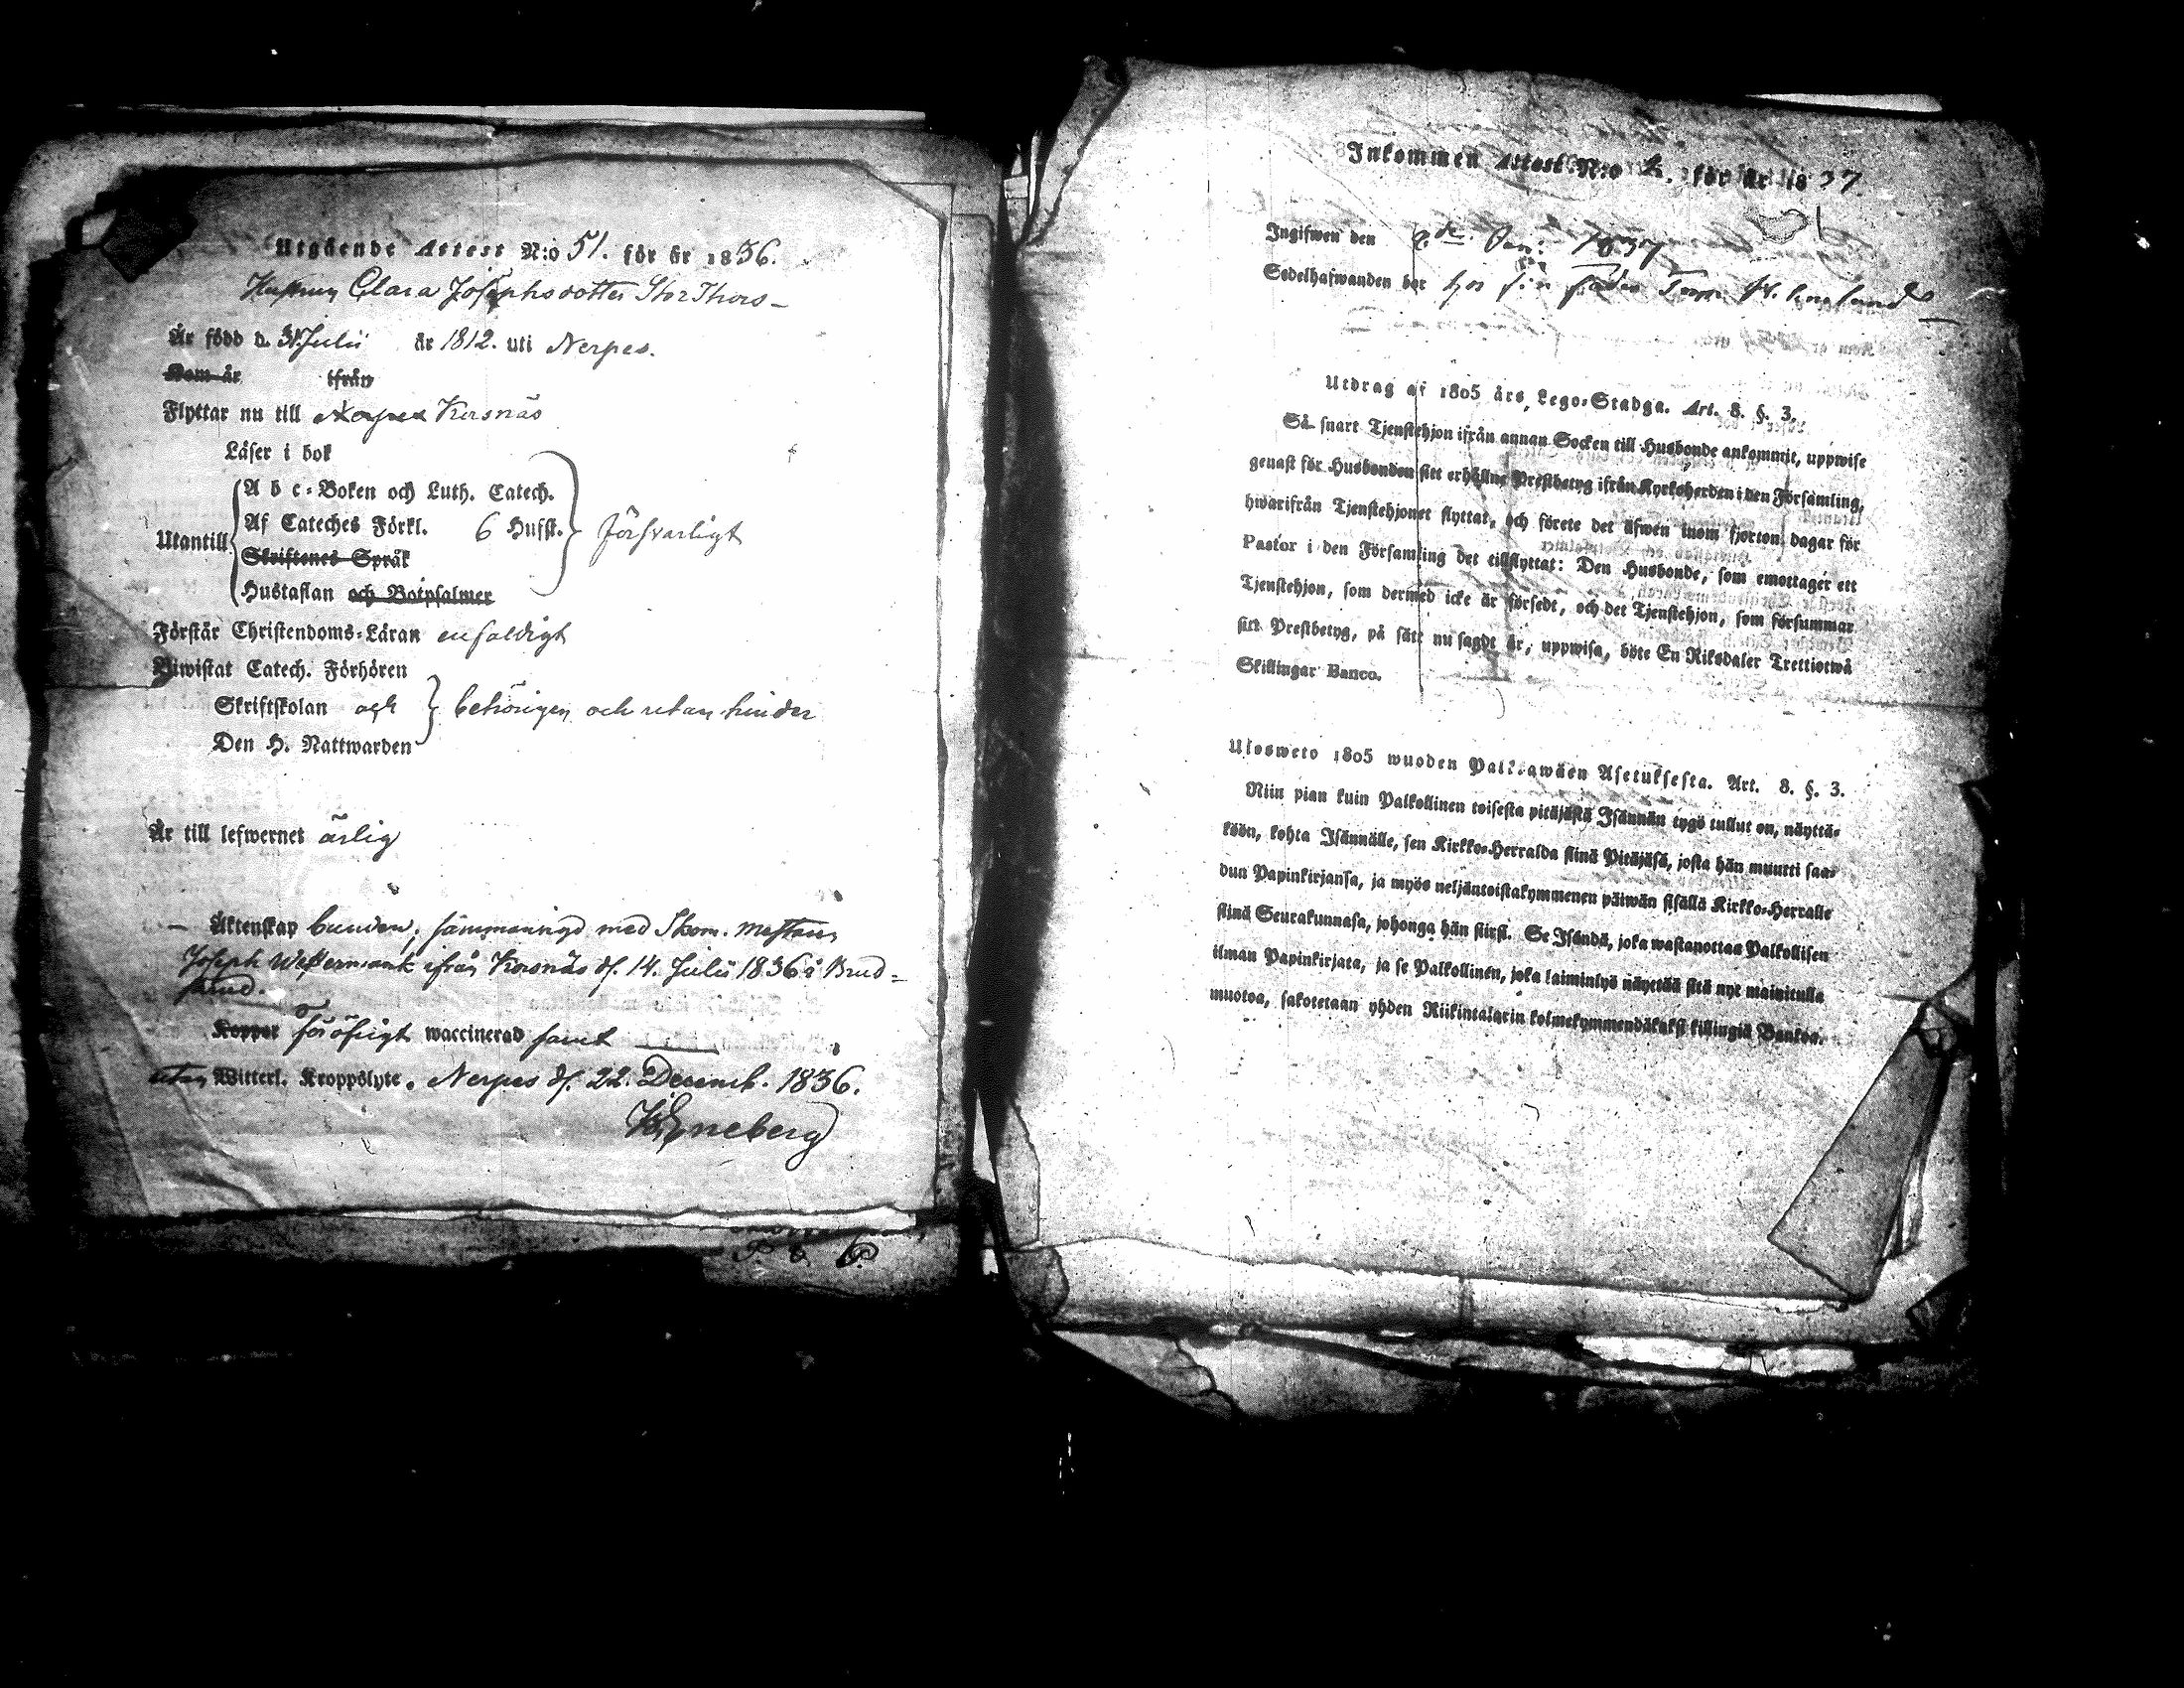 Utgående Attest N:o 51. för år 1836.
Hustrun Clara Josephsdotter StorThors-
Är född d. 31. Julii år 1812. uti Nerpes.
Kom år ifrån
Flyttar nu till Korsnäs
Läser i bok
A b c-Boken och Luth. Catech.
Af Cateches Förkl. 6 Hufst.
Utantill försvarligt
Skriftenes Språk
Hustaflan och Botpsalmer
Förstår Christendoms-Läran enfaldigt
Biwistat Catech. Förhören
Skriftskolan och behörigen och utan hinder
Den H. Nattwarden
Är till lefwernet ärlig
– Äktenskap bunden; sammanvigd med Skom. Mestaren
Joseph Westermark ifrån Korsnäs d. 14. Julii 1836 i Brud-
stund.
Koppor waccinerad samt
utan Witterl. Kroppslyte. Nerpes d. 22. Decemb. 1836.
Eneberg
P. & P.
Inkommen Attest N:o 2. för år 1837
Ingifwen den 2 Jan: 1837
Sedelhafwanden bor hos sin Fader
Utdrag af 1805 års Lego-Stadga. Art. 8. §. 3.
Så snart Tjenstehjon ifrån annan Socken till Husbonde ankommit, uppwise
genast för Husbonden sitt erhållne Prestbetyg ifrån Kyrkoherden i den Församling,
hwarifrån Tjenstehjonet flyttat, och förete det äfwen inom fjorton dagar för
Pastor i den Församling det tillflyttat: Den Husbonde, som emottager ett
Tjenstehjon, som dermed icke är försedt, och det Tjenstehjon, som försummar
sitt Prestbetyg, på sätt nu sagdt är, uppwisa, böte En Riksdaler Trettiotwå
Skillingar Banco.
Ulosweto 1805 wuoden Palkkawäen Asetuksesta. Art. 8. §. 3.
Niin pian kuin Palkollinen toisesta pitäjästä Isännän tygö tullut on, näyttä-
köön, kohta Isännälle, sen Kirkko-Herralda siinä Pitäjäsä, josta hän muutti saa-
dun Papinkirjansa, ja myös neljäntoistakymmenen päiwän sisällä Kirkko-Herralle
siinä Seurakunnasa, johonga hän siirsi. Se Isändä, joka wastanottaa Palkollisen
ilman Papinkirjata, ja se Palkollinen, joka laiminlyö näyttää sitä nyt mainitulla
muotoa, sakotetaan yhden Riikintalarin kolmekymmendäkaksi killingiä Bankoa.